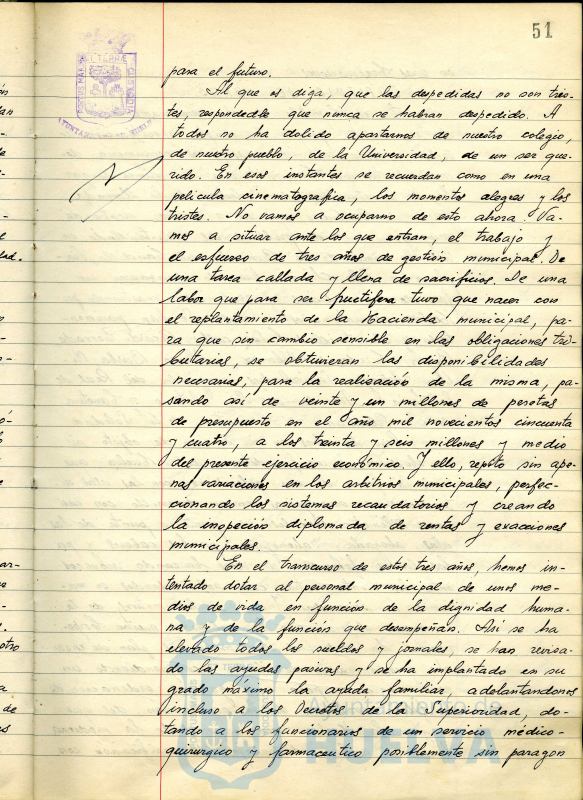 51
para el futuro.
Al que os diga, que las despedidas no son tris-
tes, respondedle que nunca se habran despedido. A
todos no ha dolido apartarnos de nuestro colegio,
de nuestro pueblo, de la Universidad, de un ser que-
rido. En esos instantes se recuerdan como en una
pelicula cinematografica, los momentos alegres y los
tristes. No vamos a ocuparno de esto ahora. Va-
mos a situar ante los que entran, el trabajo y
el esfuerzo de tres años de gestión municipal. De
una tarea callada y llena de sacrificios. De una
labor que para ser fructifera tuvo que nacer con
el replantamiento de la Hacienda municipal, pa-
ra que sin cambio sensible en las obligaciones tri-
butarias, se obtuvieran las disponibilidades
necesarias, para la realización de la misma, pa-
sando así de veinte y un millones de pesetas
de presupuesto en el año mil novecientos cincuenta
y cuatro, a los treinta y seis millones y medio
del presente ejercicio económico. Y ello, repito sin ape-
nas variaciones en los arbitrios municipales, perfec-
cionando los sistemas recaudatorios y creando
la inspección diplomada de rentas y exacciones
municipales.
En el transcurso de estos tres años, hemos in-
tentado dotar al personal municipal de unos me-
dios de vida en función de la dignidad huma-
na y de la función que desempeñan. Así se ha
elevado todos los sueldos y jornales, se han revisa-
do las ayudas pasivas y se ha implantado en su
grado máximo la ayuda familiar, adelantandonos
incluso a los Decretos de la Superioridad, do-
tando a los funcionarios de un servicio médico-
quirurgico y farmaceutico posiblemente sin paragon
HUELVA